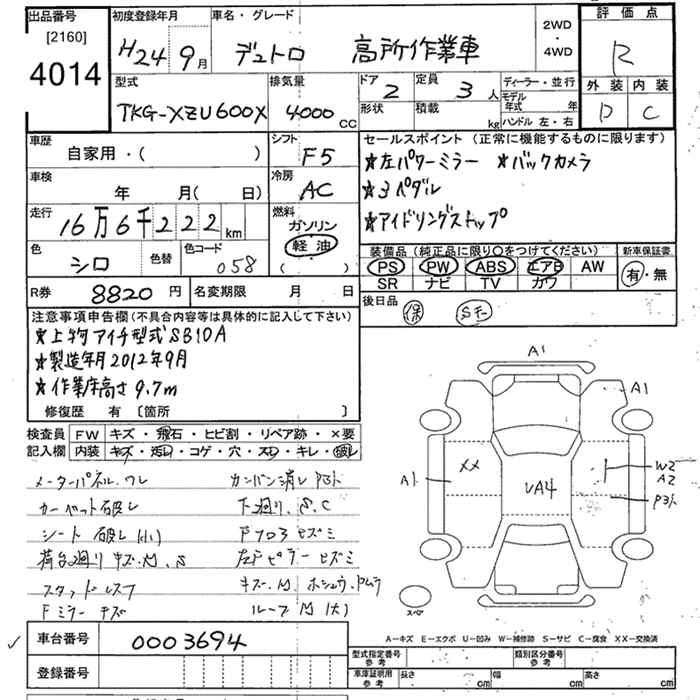 出品番号
[2160]
4014
初度登録年月
H24 9月
車名・グレード
デュトロ 高所作業車
2WD
・
4WD
評価点
R
外装 内装
D C
型式
TKG-XZU600X
排気量
4000 CC
ドア
2
定員
3 人
形状
積載
kg
ディーラー・並行
モデル年式 年
ハンドル 左・右
車歴
自家用・( )
シフト
F5
車検
年 月( 日)
冷房
AC
走行
16万6千222km
燃料
ガソリン
・
軽油
( ・ )
色
シロ
色替
色コード
058
セールスポイント (正常に機能するものに限ります)
★左パワーミラー ★バックカメラ
★3ペダル
★アイドリングストップ
装備品 (純正品に限り○をつけてください)
PS PW ABS エアB AW
SR ナビ TV カワ
新車保証書
有・無
R券 8820円
名変期限 月 日
後日品
保
注意事項申告欄(不具合内容等は具体的に記入して下さい)
★上物アイチ型式SB10A
★製造年月2012年9月
★作業床高さ9.7m
修復歴 有 〔箇所 〕
検査員
記入欄
FW キズ・飛石・ヒビ割・リペア跡・×要
内装 キズ・汚れ・コゲ・穴・スレ・キレ・破レ
メーターパネル.ワレ
カンバン消し P3ト
カーペット破レ
下廻り.S.C
シート破レ(小)
荷台廻りキズ.M.S
左ドピラーヒズミ
スタッドレス7
Fミラーキズ
ルーフM(大)
A1
A1
A1
XX
UA4
W2
A2
P3ト
スペア
A-キズ E-エクボ U-凹み W-補修跡 S-サビ C-腐食 XX-交換済
車台番号 0003694
登録番号
型式指定番号
参考
類別区分番号
参考
車庫証明用
参考
長さ cm
幅 cm
高さ cm